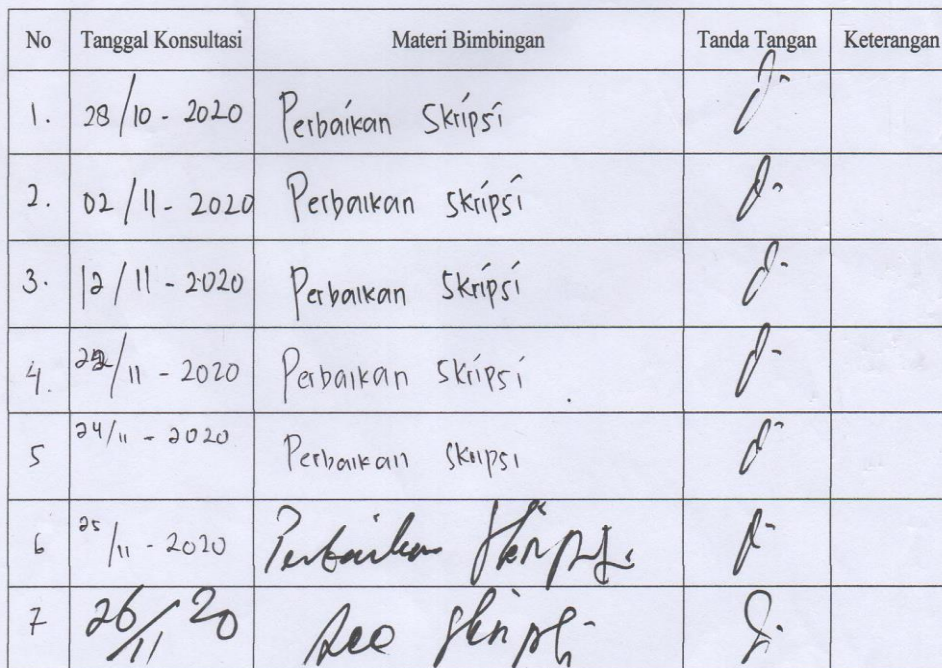 No Tanggal Konsultasi Materi Bimbingan Tanda Tangan Keterangan
1. 28/10 - 2020 Perbaikan Skripsi
2. 02/11 - 2020 Perbaikan Skripsi
3. 12/11 - 2020 Perbaikan Skripsi
4. /11 - 2020 Perbaikan Skripsi
5 24/11 - 2020 Perbaikan Skripsi
6 25/11 - 2020 Perbaikan Skripsi.
7 26/11 20 Acc Skripsi